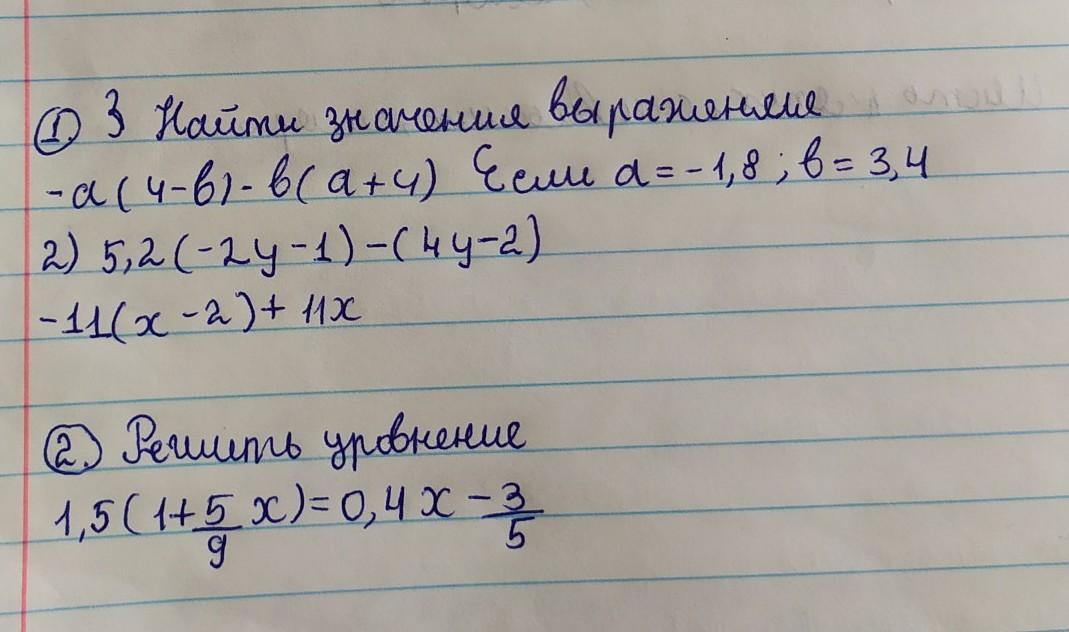 ① 3 Найти значения выражения
-а(4-в)-в(а+4) Если а=-1,8; в=3,4
2) 5,2(-2y-1)-(4y-2)
-11(x-2)+11x
②. Решить уровнение
1,5(1+5/9 x)=0,4x-3/5